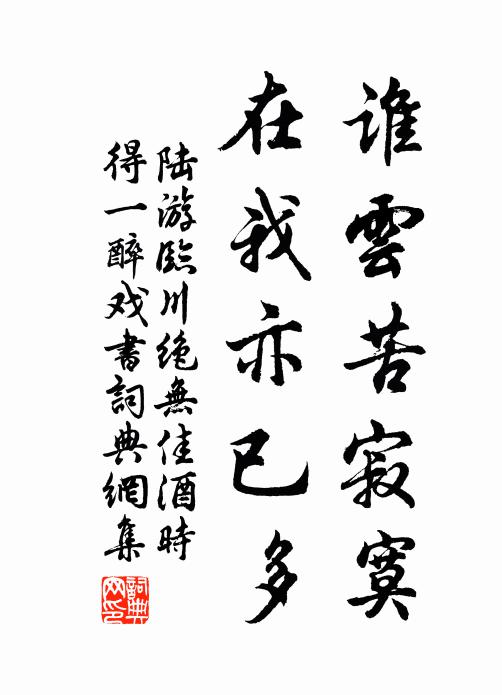 誰雲苦寂寞
在我亦已多
陆游臨川绝無佳酒時
得一醉戏書詞典網集
詞典網印